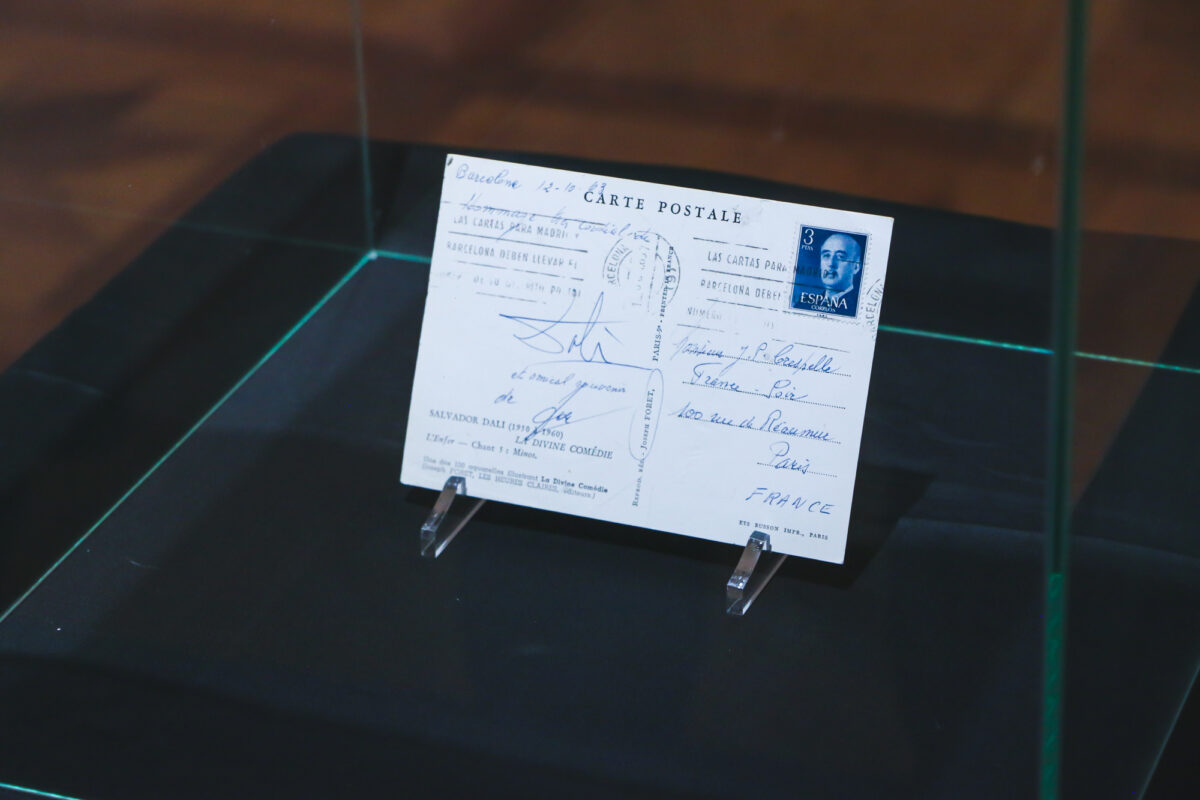 Barcelona 12-10-63
CARTE POSTALE
Hommage très cordial de
LAS CARTAS PARA MADRID
BARCELONA DEBEN LLEVAR EL
Dali
et amical souvenir
de
SALVADOR DALI (1950 à 1960)
LA DIVINE COMÉDIE
L'Enfer — Chant 5 : Minos.
Une des 100 aquarelles illustrant La Divine Comédie
(Joseph FORET, LES HEURES CLAIRES, éditeurs)
REPROD. RÉS. - JOSEPH FORET, PARIS-9e - PRINTED IN FRANCE
LAS CARTAS PARA MADRID
BARCELONA DEBEN
NUMERO
3
PTAS
ESPAÑA
CORREOS
BARCELONA
Monsieur J. P. Crespelle
France-Soir
100 rue de Réaumur
Paris
FRANCE
ETS BUSSON IMPR., PARIS